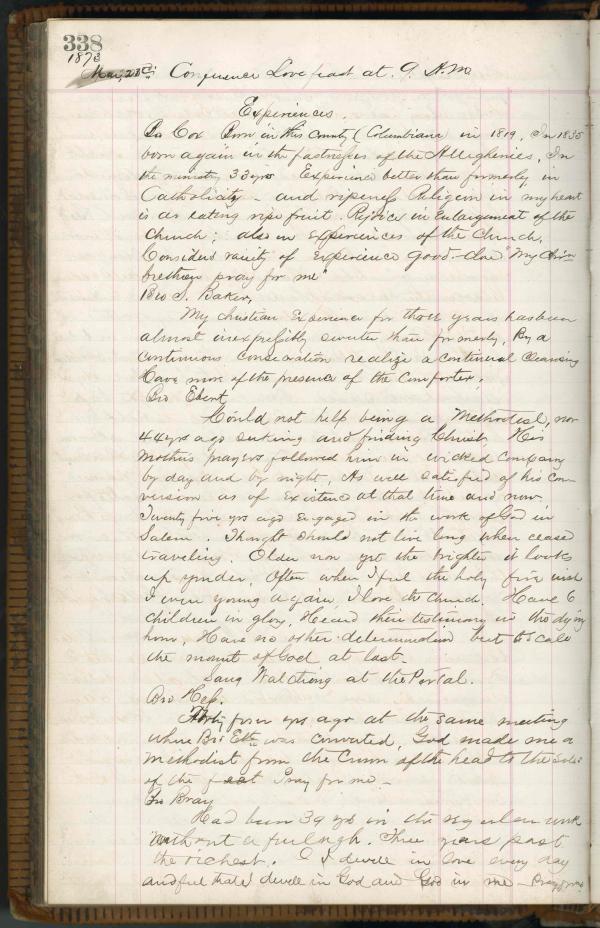 338
1873
Mar, 28th Conference Love feast at. 9. A.M.
Experiences.
Bro Cox Born in this County (Columbiana in 1819, In 1835
born again in the fastnesses of the Alleghenies. In
the ministry 33 yrs Experience better than formerly, in
Catholicity - and ripeness Religion in my heart
is as eating ripe fruit. Rejoice in Enlargement of the
Church; also in Experiences of the Church.
Considers variety of Experience good
brethren pray for me"
Bro S. Baker,
My christian Experience for three years has been
almost inexpressibly sweeter than formerly, By a
continuous consecration realize a continual cleansing
Have more of the presence of the Comforter.
Bro Ebert
Could not help being a Methodist, now
44 yrs ago seeking and finding Christ. His
Mothers prayers followed him in wicked company
by day and by night, As well satisfied of his con-
version as of existence at that time and now
Twenty five yrs ago engaged in the work of God in
Salem. Thought should not live long when ceased
traveling. Older now yet the brighter it looks
up yonder, Often when I feel the holy fire wish
I were young again. I love the Church. Have 6
children in glory, Heard their testimony in the dying
hour, Have no other determination but to scale
the mount of God at last.
Sang Watching at the Portal.
Bro
Forty four yrs ago at the same meeting
where Bro was converted, God made me a
Methodist from the Crown of the head to the soles
of the feet Pray for me -
Bro Bray
Had been 39 yrs in the regular work
without a furlough. Three years past
the richest. I dwell in love every day
and feel that I dwell in God and God in me - Pray for me